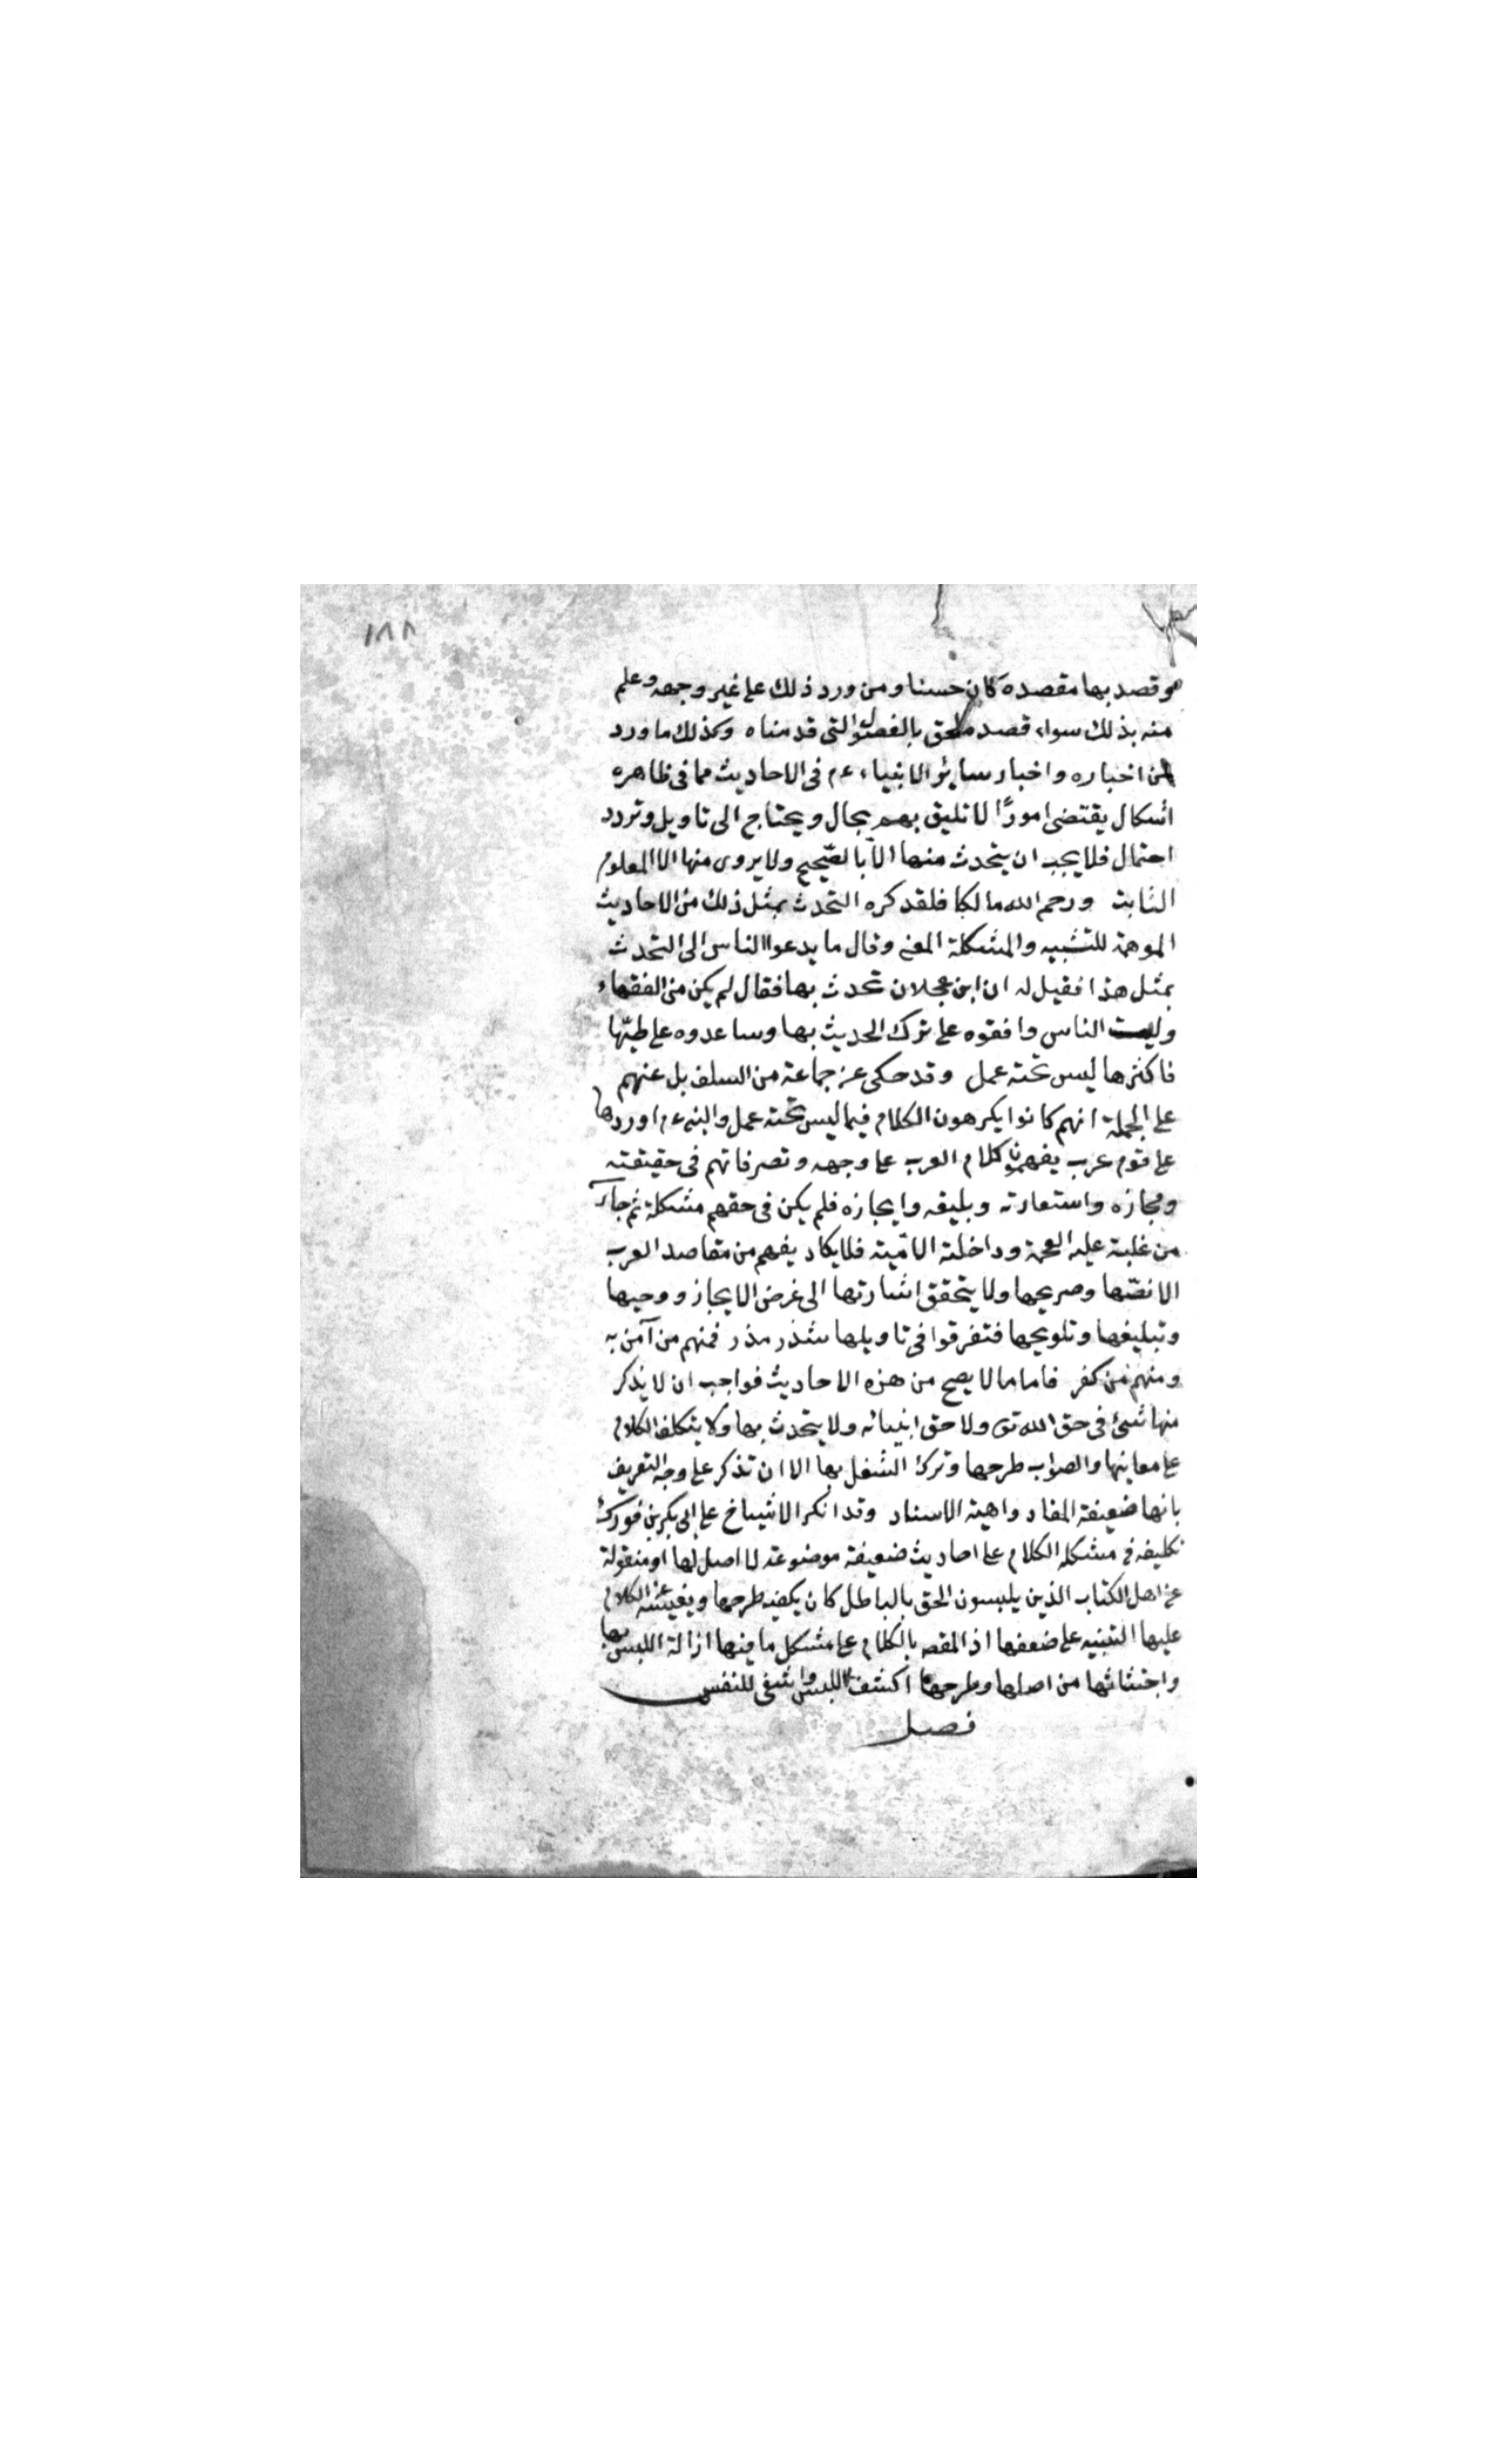 ١٨٨
وقصد بها مقصده كان حسنا ومن ورد ذلك على غير وجهه وعلم
منه بذلك سواء قصد ملحق بالفصول التى قدمناه وكذلك ما ورد
من اخباره واخبار سائر الانبياء عم فى الاحاديث مما فى ظاهره
اشكال يقتضى امورًا لا تليق بهم بحال ويحتاج الى تاويل وتردد
احتمال فلا يجب ان يتحدث منها الا بالصحيح ولا يروى منها الا المعلوم
الثابت ورحم الله مالكا فلقد كره التحدث بمثل ذلك من الاحاديث
الموهمة للتشبيه والمشكلة المعنى وقال ما يدعوا الناس الى التحدث
بمثل هذا فقيل له ان ابن عجلان تحدث بها فقال لم يكن من الفقهاء
وليت الناس وافقوه على ترك الحديث بها وساعدوه على طيّها
فاكثرها ليس تحته عمل وقد حكى عن جماعة من السلف بل عنهم
على الجملة انهم كانوا يكرهون الكلام فيما ليس تحته عمل والنبى عم اوردها
على قوم عرب يفهمون كلام العرب على وجهه وتصرفاتهم فى حقيقته
ومجازه واستعارته وبليغه وايجازه فلم يكن فى حقهم مشكلة ثم جاء
من غلبة عليه العجمة وداخلته الاميّة فلا يكاد يفهم من مقاصد العرب
الا نصّها وصريحها ولا يتحقق اشارتها الى غرض الايجاز ووحيها
وتبليغها وتلويحها فتفرقوا فى تاويلها شذر مذر فمنهم من آمن به
ومنهم من كفر فاما ما لا يصح من هذه الاحاديث فواجب ان لا يذكر
منها شئ فى حق الله تع ولا حق انبيائه ولا يتحدث بها ولا يتكلف الكلام
على معانيها والصواب طرحها وترك الشغل بها الا ان تذكر على وجه التعريف
بانها ضعيفة المفاد واهية الاسناد وقد انكر الاشياخ على ابى بكر بن فورك
تكليفه فى مشكله الكلام على احاديث ضعيفة موضوعة لا اصل لها او منقولة
عن اهل الكتاب الذين يلبسون الحق بالباطل كان يكفيه طرحها ويغنيه عن الكلام
عليها التنبيه على ضعفها اذ المقصد بالكلام على مشكل ما فيها ازالة اللبس بها
واجتثاثها من اصلها وطرحها اكشف للبس واشفى للنفس
فصل